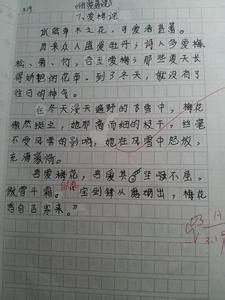 (仿爱莲说)
7.爱梅说
武陵草木之花,可爱者甚蕃。
自来众人盛爱牡丹;诗人多爱梅、
松、菊、竹,吾五爱梅;那些夏天长
得娇艳的花草,到了冬天,就没有了
往日的神气。
在冬天漫天遍野的飞雪中,梅花
傲然挺立,她那高而细的枝干,丝毫
不受风雪的影响,她在风雪中怒放,
充满豪情。
吾爱梅花,吾爱其坚强不屈,
傲雪斗霜。
宝剑锋从磨砺出,梅花
香自苦寒来。”